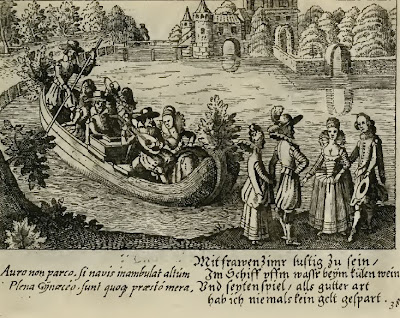 Auro non parco, si navis inambulat altùm
Plena Gynæcéo, sunt quoq̨ præsto mera,
Mit frawenzimr lustig zu sein,
Im Schiff vffm wasser beym külen wein
Vnd seytenspiel, alls gutter art
hab ich niemals kein gelt gespart.
38